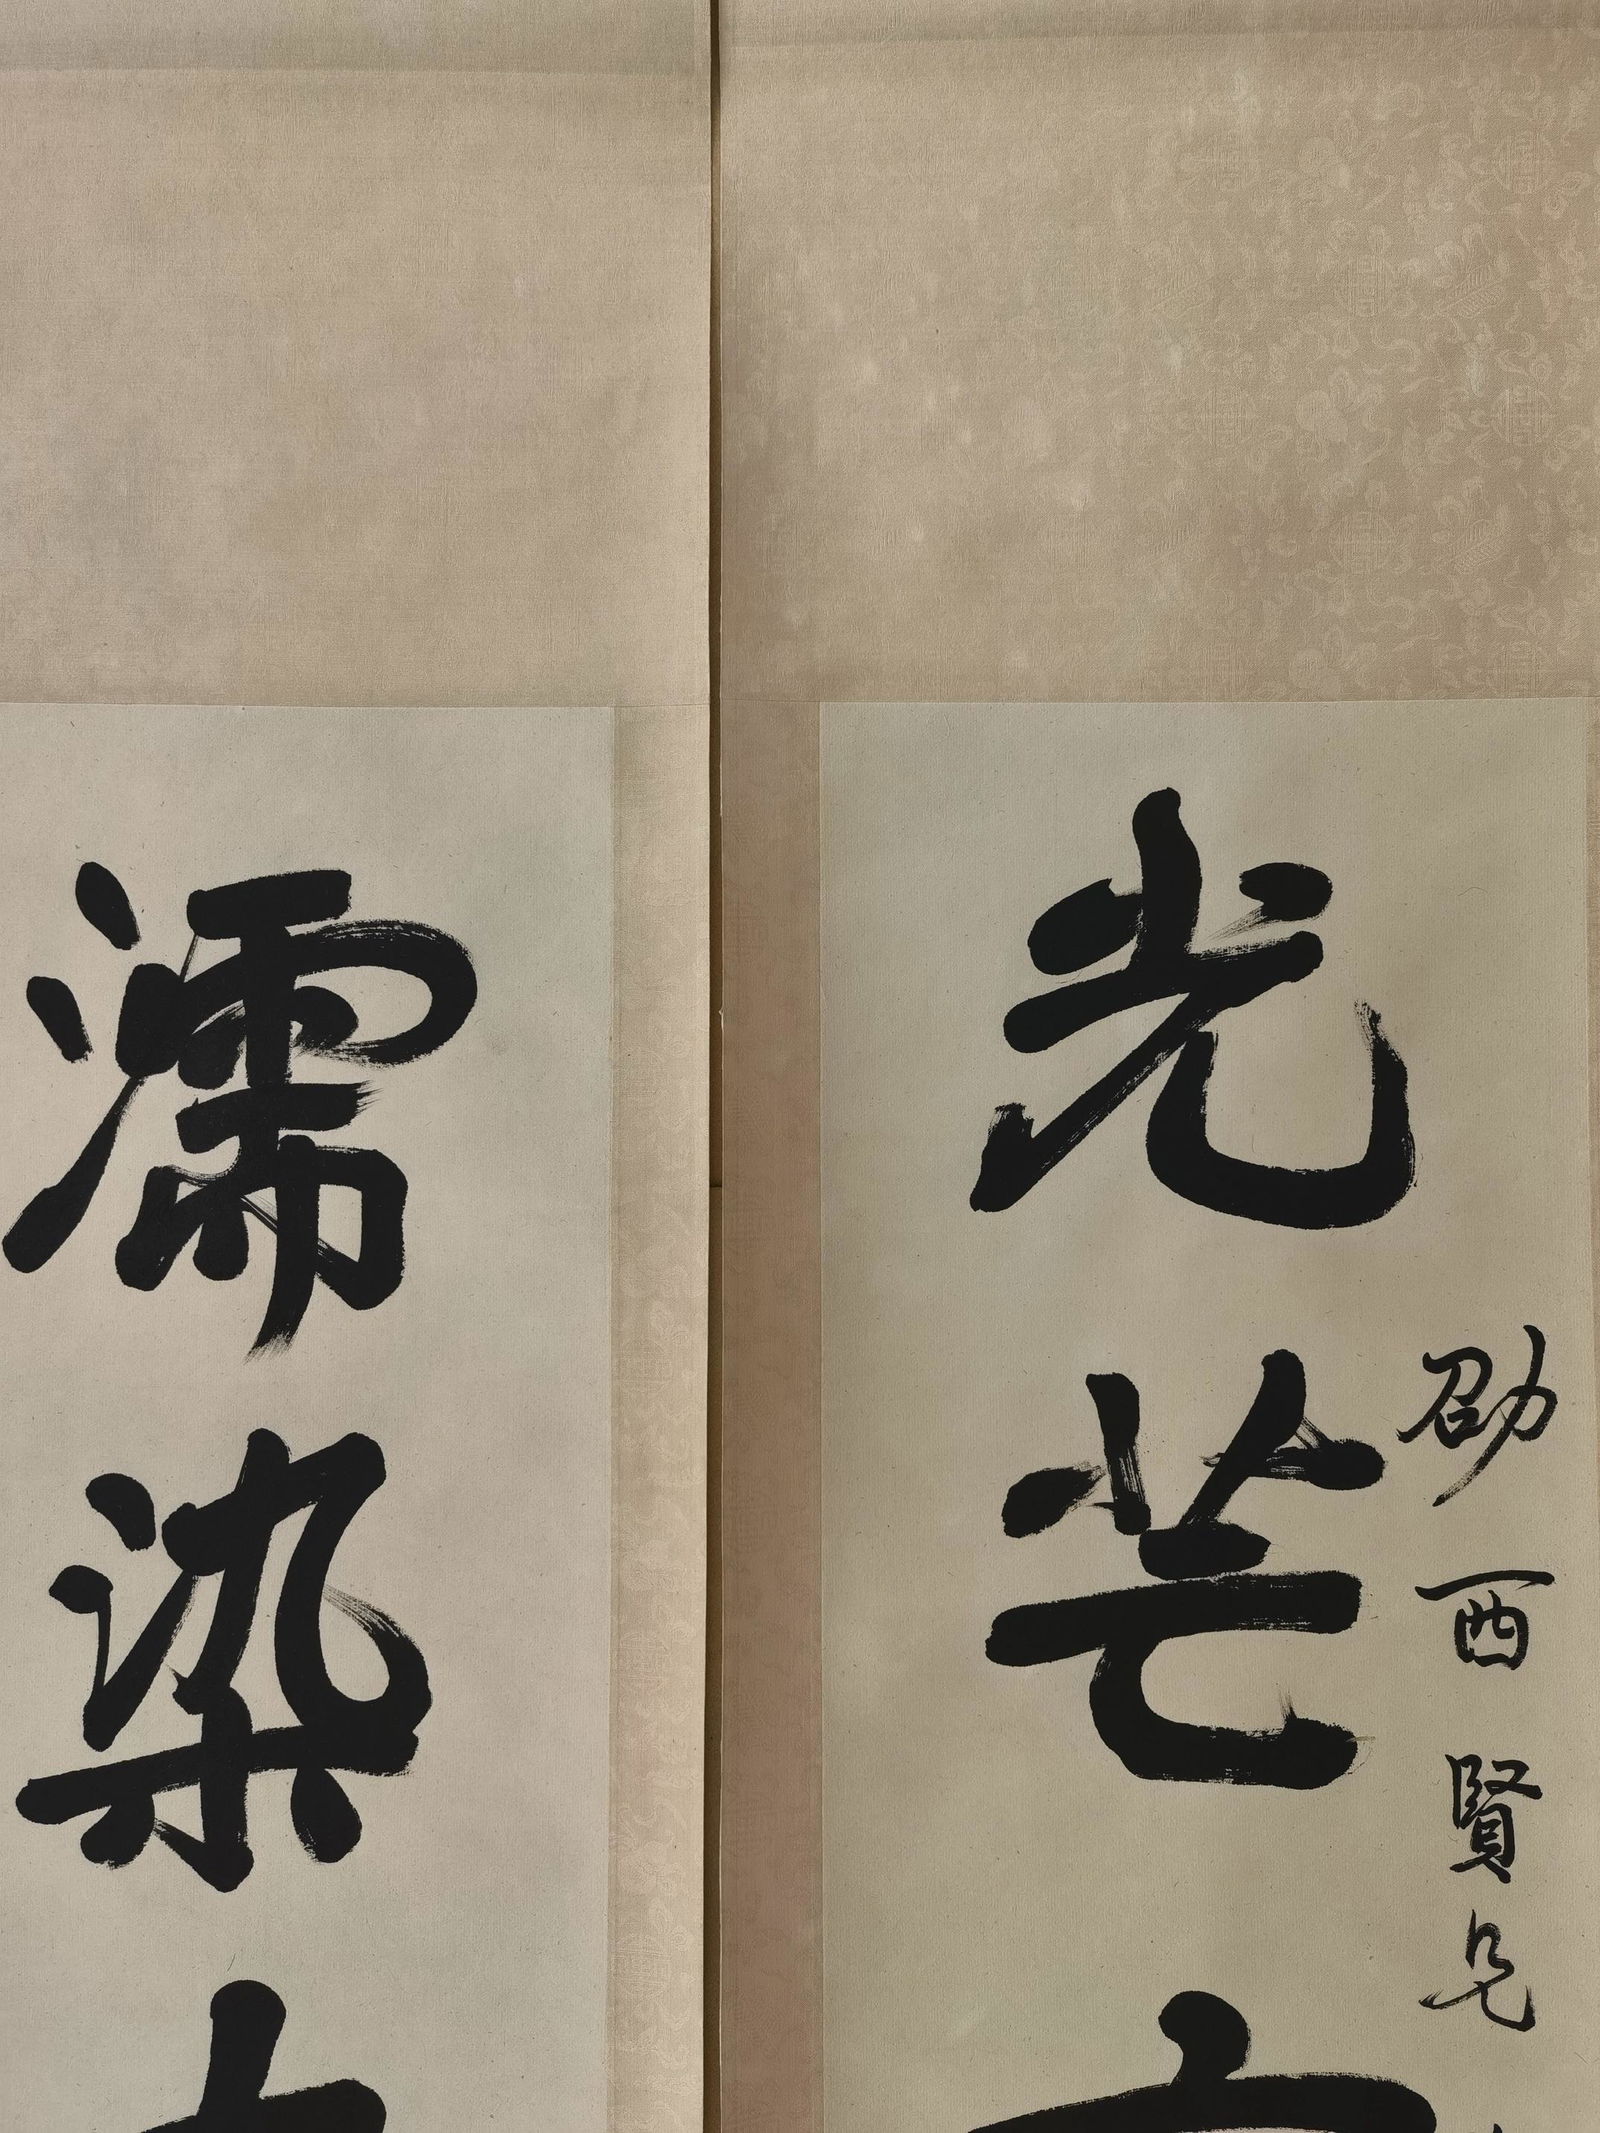 光芒
劭西賢兄
濡染